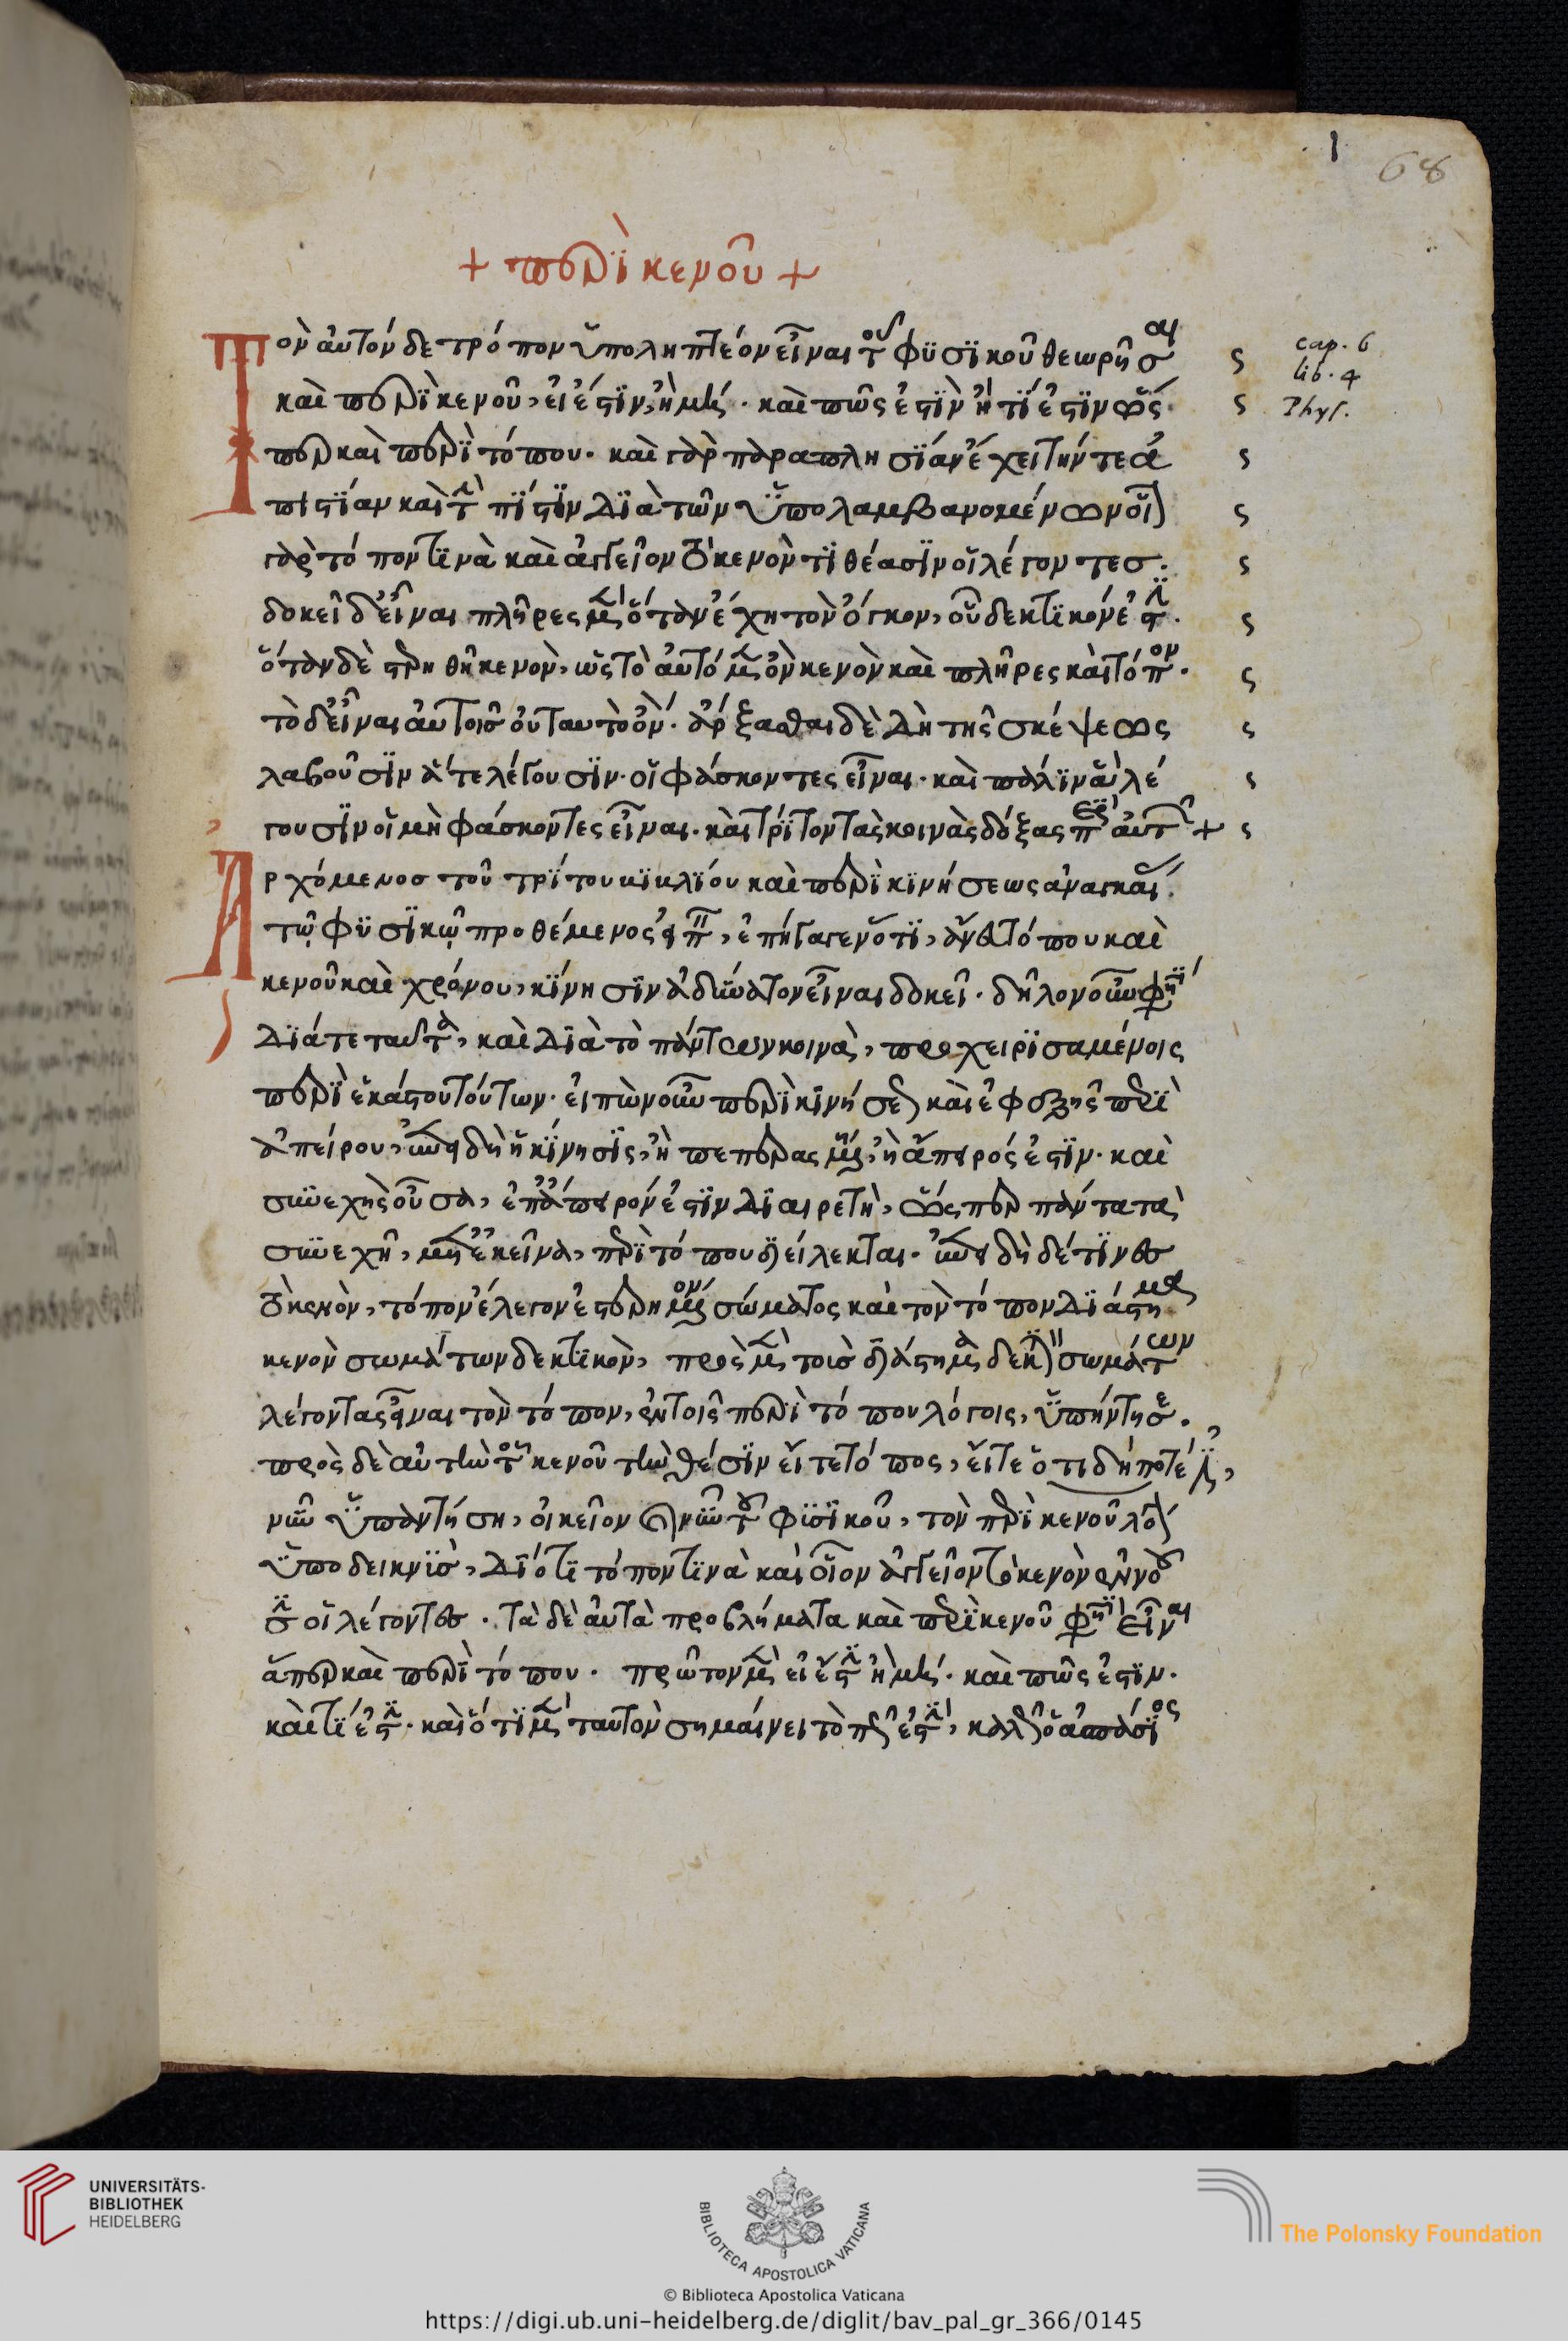 1 68
+ περὶ κενοῦ +
Τὸν αὐτὸν δὲ τρόπον ὑποληπτέον εἶναι τοῦ φυσικοῦ θεωρῆσαι
καὶ περὶ κενοῦ, εἰ ἔστιν, ἢ μή. καὶ πῶς ἐστὶν ἢ τί ἐστιν ὥς
περ καὶ περὶ τόπου. καὶ γὰρ παραπλησίαν ἔχει τήν τε ἀ
πιστίαν καὶ τὴν πίστιν διὰ τῶν ὑπολαμβανομένων οἷον
γὰρ τόπον τινὰ καὶ ἀγγεῖον τὸ κενὸν τιθέασιν οἱ λέγοντες.
δοκεῖ δ' εἶναι πλῆρες μὲν ὅταν ἔχη τὸν ὄγκον, οὗ δεκτικόν ἐστιν.
ὅταν δὲ στερηθῆ κενὸν, ὡς τὸ αὐτὸ μὲν ὂν κενὸν καὶ πλῆρες καὶ τόπον.
τὸ δ' εἶναι αὐτοῖς οὐ ταυτὸ ὄν. ἄρξασθαι δὲ δὴ τῆς σκέψεως
λαβοῦσιν ἅ τε λέγουσιν οἱ φάσκοντες εἶναι. καὶ πάλιν ἃ λέ
γουσιν οἱ μὴ φάσκοντες εἶναι. καὶ τρίτον τὰς κοινὰς δόξας περὶ αὐτῶν +
Ἀρχόμενος τοῦ τρίτου βιβλίου καὶ περὶ κινήσεως ἀναγκαῖον
τῷ φυσικῷ προθέμενος εἰπεῖν, ἐπήγαγεν ὅτι, ἄνευ τόπου καὶ
κενοῦ καὶ χρόνου, κίνησιν ἀδύνατον εἶναι δοκεῖ. δῆλον οὖν φησὶ
διά τε ταῦτα, καὶ διὰ τὸ πάντων κοινὰ, προχειρισαμένοις
περὶ ἑκάστου τούτων. εἰπὼν οὖν περὶ κινήσεως καὶ ἐφεξῆς περὶ
ἀπείρου, ἐπειδὴ ἡ κίνησις, ἢ πεπερασμένη, ἢ ἄπειρός ἐστιν. καὶ
συνεχὴς οὖσα, ἐπ' ἄπειρόν ἐστιν διαιρετὴ, ὥσπερ πάντα τὰ
συνεχῆ, μετ' ἐκεῖνα, περὶ τόπου διείλεκται. ἐπειδὴ δέ τινες
τὸ κενὸν, τόπον ἔλεγον ἐστερημένον σώματος καὶ τὸν τόπον διάστημα
κενὸν σωμάτων δεκτικὸν, πρὸς μὲν τοὺς διάστημα δεκτικὸν σωμάτων
λέγοντας εἶναι τὸν τόπον, ἐν τοῖς περὶ τόπου λόγοις, ὑπήντησε.
πρὸς δὲ αὐτὴν τοῦ κενοῦ τὴν θέσιν εἴτε τόπος, εἴτε ὅ τι δήποτέ ἐστιν,
νῦν ὑπαντήσει, οἰκεῖον εἶναι τοῦ φυσικοῦ, τὸν περὶ κενοῦ λόγον
ὑποδεικνὺς, διότι τόπον τινὰ καὶ οἷον ἀγγεῖον τὸ κενὸν ἐννοοῦ
σιν οἱ λέγοντες. τὰ δὲ αὐτὰ προβλήματα καὶ περὶ κενοῦ φησὶν εἶναι
ἅπερ καὶ περὶ τόπου. πρῶτον μὲν εἰ ἔστιν ἢ μή. καὶ πῶς ἐστιν.
καὶ τί ἐστιν. καὶ ὅτι μὲν ταυτὸν σημαίνει τὸ πῶς ἐστὶ, καλῶς ὁ ἀσπάσιος
ς
ς
ς
ς
ς
ς
ς
ς
ς
ς
cap. 6
lib. 4
Phys.
UNIVERSITÄTS-
BIBLIOTHEK
HEIDELBERG
BIBLIOTECA APOSTOLICA VATICANA
The Polonsky Foundation
© Biblioteca Apostolica Vaticana
https://digi.ub.uni-heidelberg.de/diglit/bav_pal_gr_366/0145